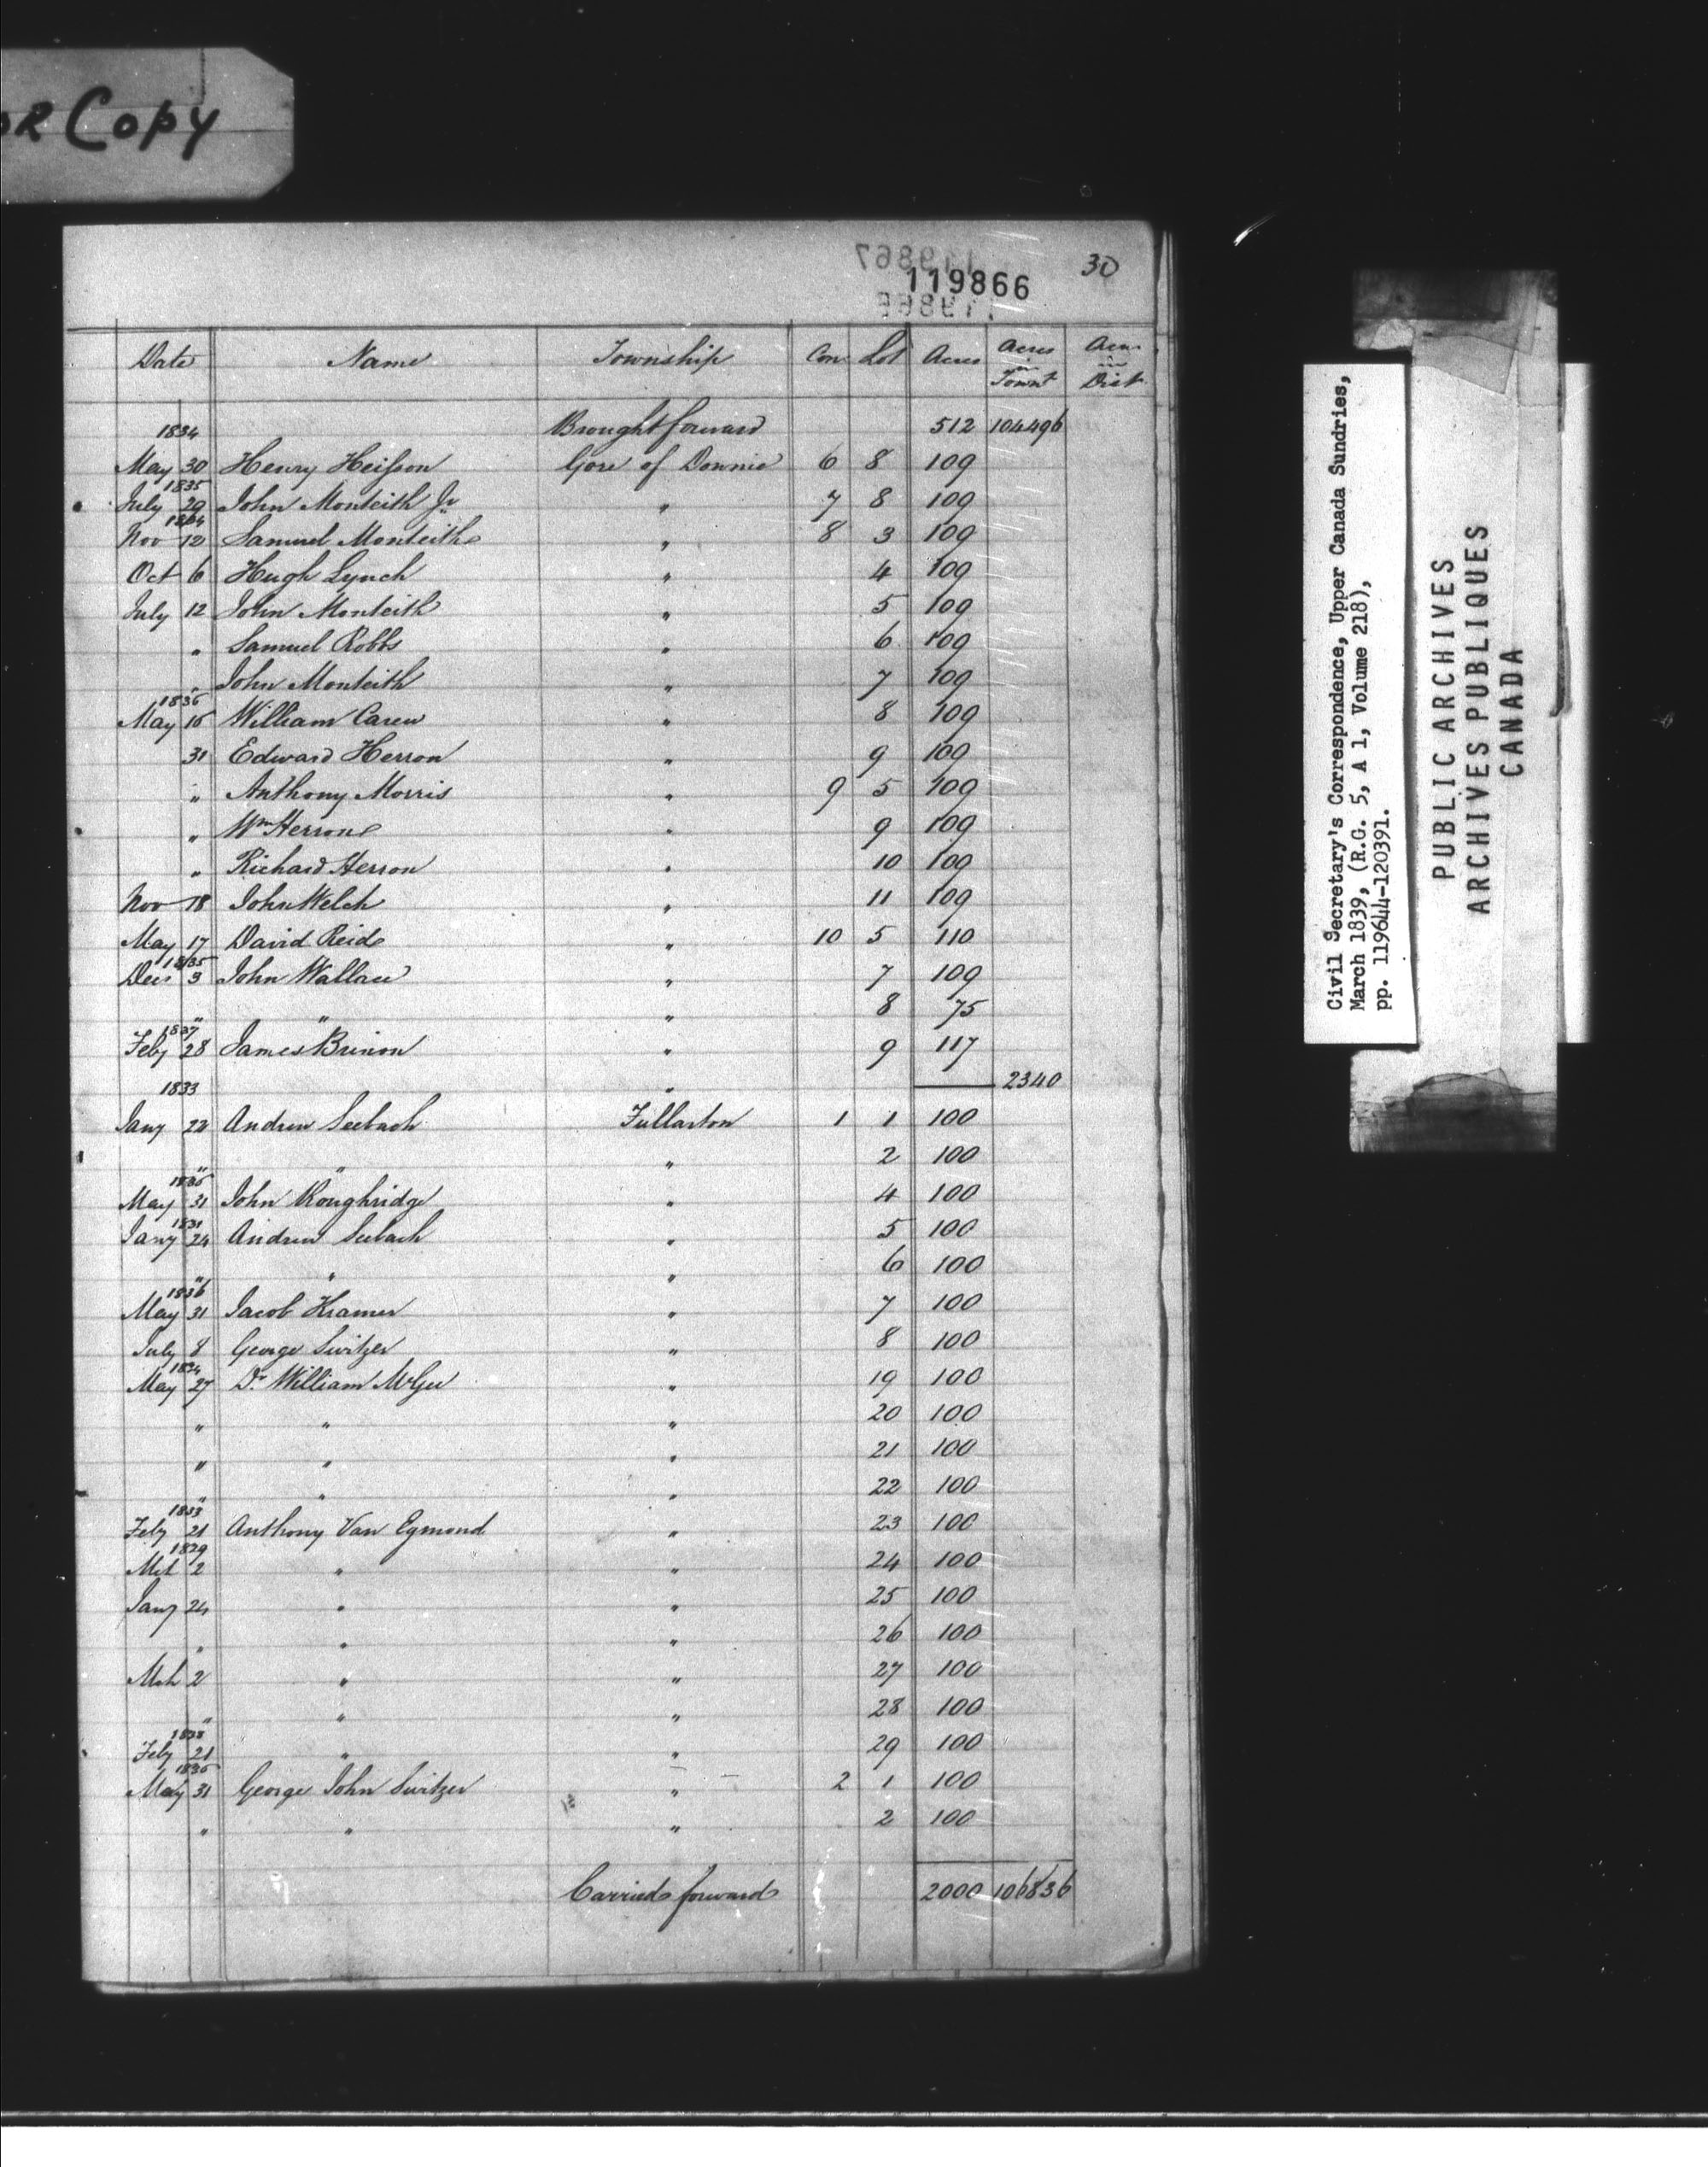 OR Copy
119867
119866
30
Date Name Township Con Lot Acres Acres in Townp Acres in Dist
1834 Brought forward 512 104496
May 30 Henry Heifson Gore of Downie 6 8 109
1835
July 29 John Monteith Jr " 7 8 109
1834
Nov 12 Samuel Monteith " 8 3 109
Oct 6 Hugh Lynch " 4 109
July 12 John Monteith " 5 109
" Samuel Robbs " 6 109
" John Monteith " 7 109
1836
May 16 William Carew " 8 109
31 Edward Herron " 9 109
" Anthony Morris " 9 5 109
" Wm Herron " 9 109
" Richard Herron " 10 109
Nov 18 John Welch " 11 109
May 17 David Reid " 10 5 110
1835
Dec 3 John Wallace " 7 109
" " " 8 75
1837
Feby 28 James Brinon " 9 117
1833 " 2340
Jany 22 Andrew Seebach Fullarton 1 1 100
" " " 2 100
1836
May 31 John Roughridge " 4 100
1831
Jany 24 Andrew Seebach " 5 100
" " " 6 100
1836
May 31 Jacob Kramer " 7 100
July 8 George Switzer " 8 100
1834
May 27 Dr William McGee " 19 100
" " " 20 100
" " " 21 100
" " " 22 100
1833
Feby 21 Anthony Van Egmond " 23 100
1829
Mch 2 " " 24 100
Jany 24 " " 25 100
" " " 26 100
Mch 2 " " 27 100
" " " 28 100
1833
Feby 21 " " 29 100
1836
May 31 George John Switzer " 2 1 100
" " " 2 100
Carried forward 2000 106836
Civil Secretary's Correspondence, Upper Canada Sundries,
March 1839, (R.G. 5, A 1, Volume 218),
pp. 119644-120391.
PUBLIC ARCHIVES
ARCHIVES PUBLIQUES
CANADA